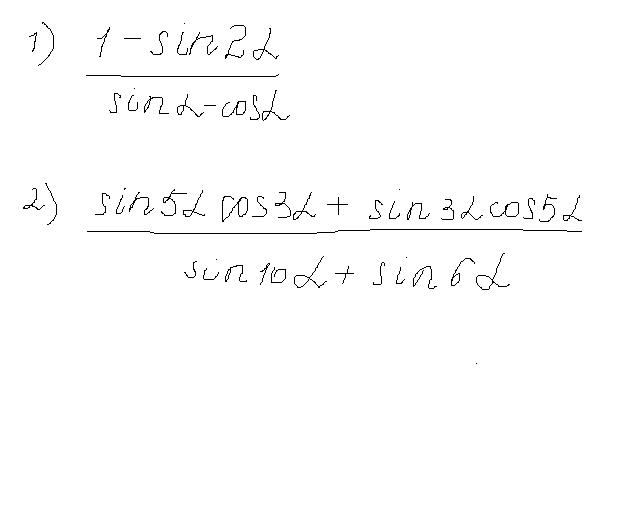 1) 1 - sin2α
sinα - cosα
2) sin5α cos3α + sin3α cos5α
sin10α + sin6α